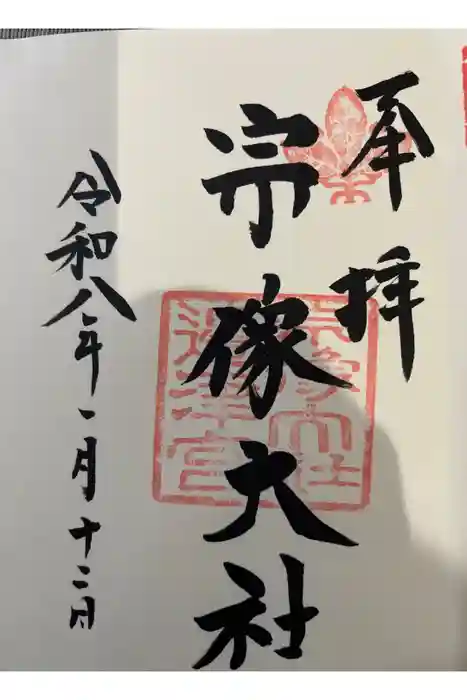 奉拝
宗像大社
宗像大社
邊津宮
令和八年一月十二日